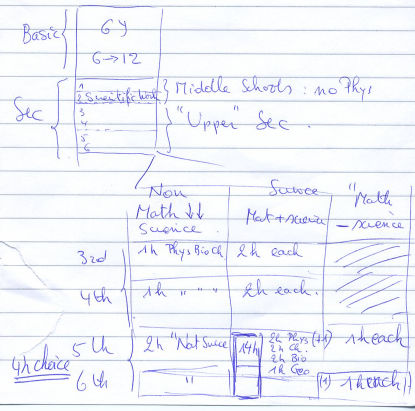 Basic
6 y
6→12
Sec
1
2 Scientific
3
4
5
6
Middle Schools: no Phys
"Upper" Sec.
Non
Math ↓↓
Science
Science
Mat + science
"Math
- science
3rd
1h Phys Bio Ch
2h each
4th
1h " " "
2h each.
5th
2h "Nat Science
14h
2h Phys (+1)
2h Ch.
2h Bio
1h Geo
1h each
4h choice
6th
"
(1) 1h each